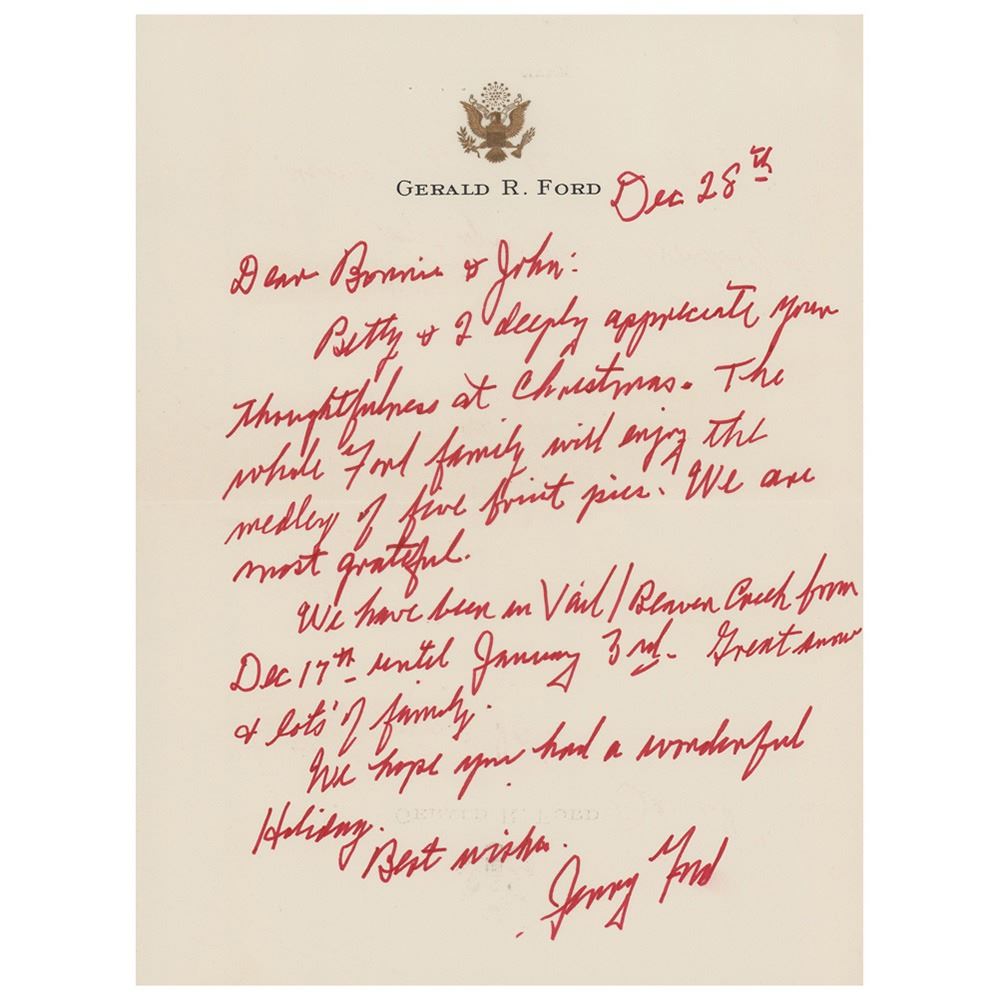 GERALD R. FORD
Dec 28th
Dear Bonnie & John:
Betty & I deeply appreciate your
thoughtfulness at Christmas. The
whole Ford family will enjoy the
medley of five fruit pies. We are
most grateful.
We have been in Vail/Beaver Creek from
Dec 17th until January 3rd. Great snow
& lots' of family.
We hope you had a wonderful
Holiday.
Best wishes.
Jerry Ford